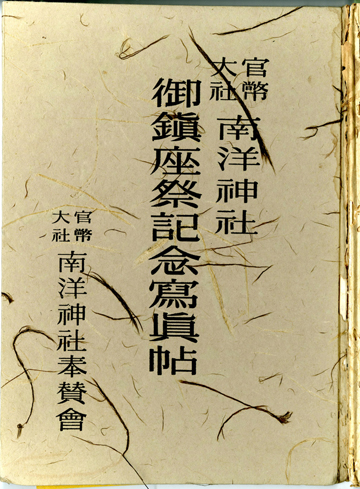 官幣大社 南洋神社
御鎭座祭記念寫眞帖
官幣大社 南洋神社奉賛會